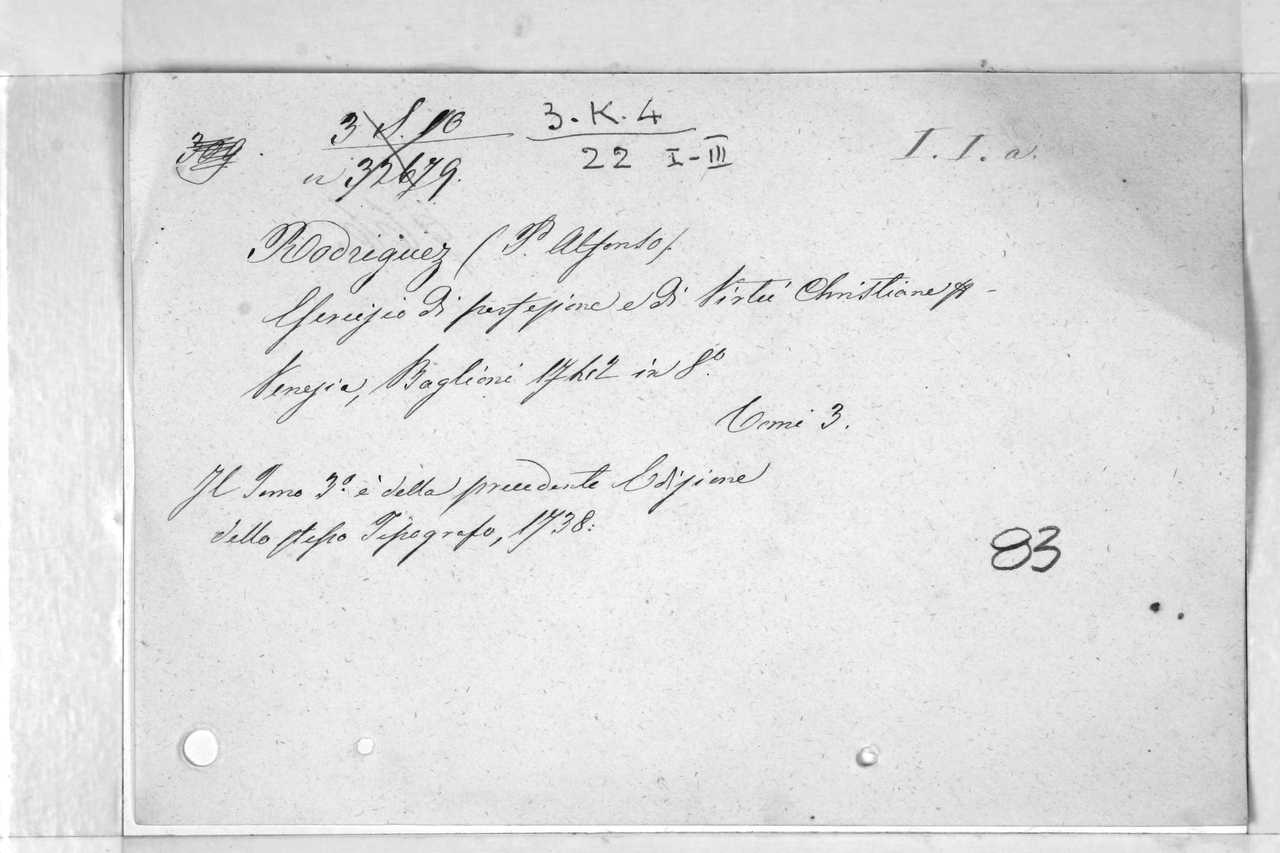 3. K. 4
I. I. a.
22 I-III
n 32679.
Rodriguez (P. Alfonso)
Esercizio di perfezione e di Virtù Christiane
Venezia, Baglioni 1742 in 8º.
Tomi 3.
Il Tomo 3º è della precedente Edizione
dello stesso Tipografo, 1738.
83